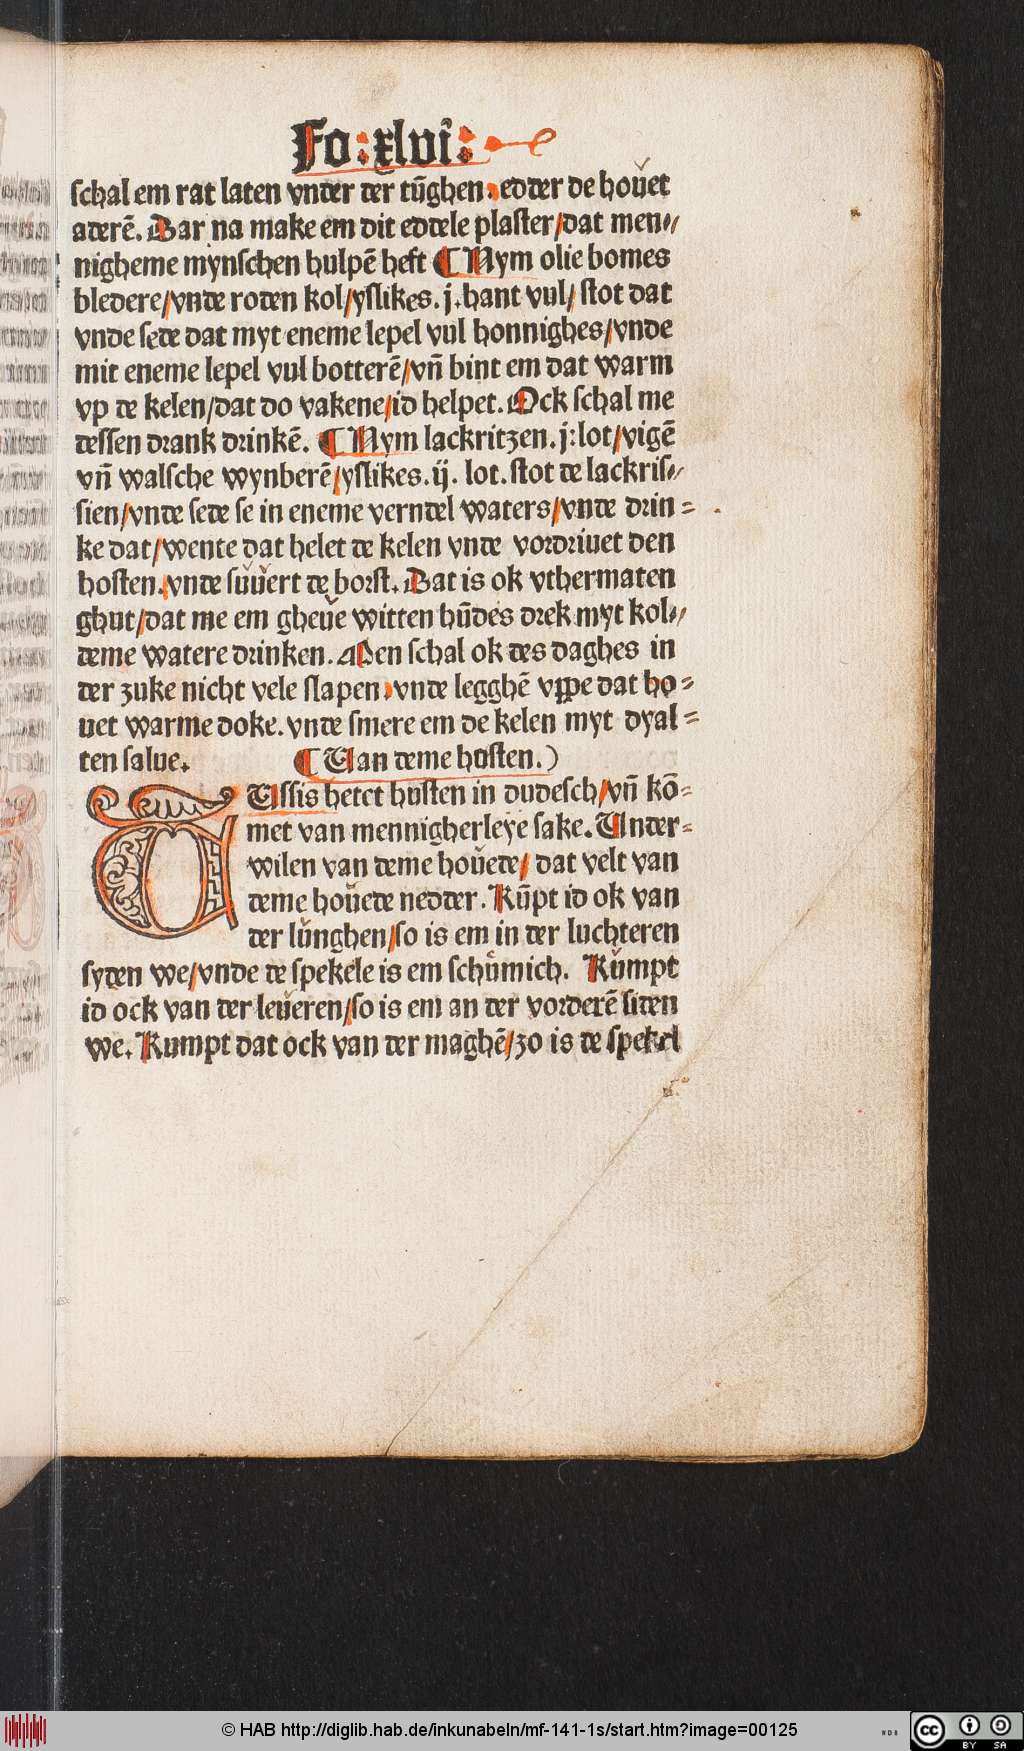 Fo: xlvi:
schal em rat laten vnder der tūghen. edder de houͤet
aderē. Dar na make em dit eddele plaster/dat men⸗
nigheme mynschen hulpē heft ¶ Nym olie bomes
bledere/vnde roden kol/yslikes. j. hant vul/ stot dat
vnde sede dat myt eneme lepel vul honnighes/vnde
mit eneme lepel vul botterē/vn̄ bint em dat warm
vp de kelen/dat do vakene/id helpet. Ock schal me
dessen drank drinkē. ¶ Nym lackritzen. j: lot/vigē
vn̄ walsche wynberē/yslikes. ij. lot. stot de lackris⸗
sien/vnde sede se in eneme verndel waters/vnde drin⸗
ke dat/wente dat helet de kelen vnde vordriuet den
hosten. vnde suͤuͤert de borst. Dat is ok vthermaten
ghut/dat me em gheuͤe witten hūdes drek myt kol⸗
deme watere drinken. Men schal ok des daghes in
der zuke nicht vele slapen. vnde legghē vppe dat ho⸗
uet warme doke. vnde smere em de kelen myt dyal⸗
ten salue. ¶ Van deme husten.)
TVssis hetet husten in dudesch/vn̄ kō⸗
met van mennigherleye sake. Vnder⸗
wilen van deme houͤede/ dat velt van
deme houͤede nedder. Kūpt id ok van
der luͤnghen/so is em in der luchteren
syden we/vnde de spekele is em schuͤmich. Kuͤmpt
id ock van der leuͤeren/so is em an der vorderē siden
we. Kumpt dat ock van der maghē/zo is de spekel
© HAB http://diglib.hab.de/inkunabeln/mf-141-1s/start.htm?image=00125
WDB
cc BY SA